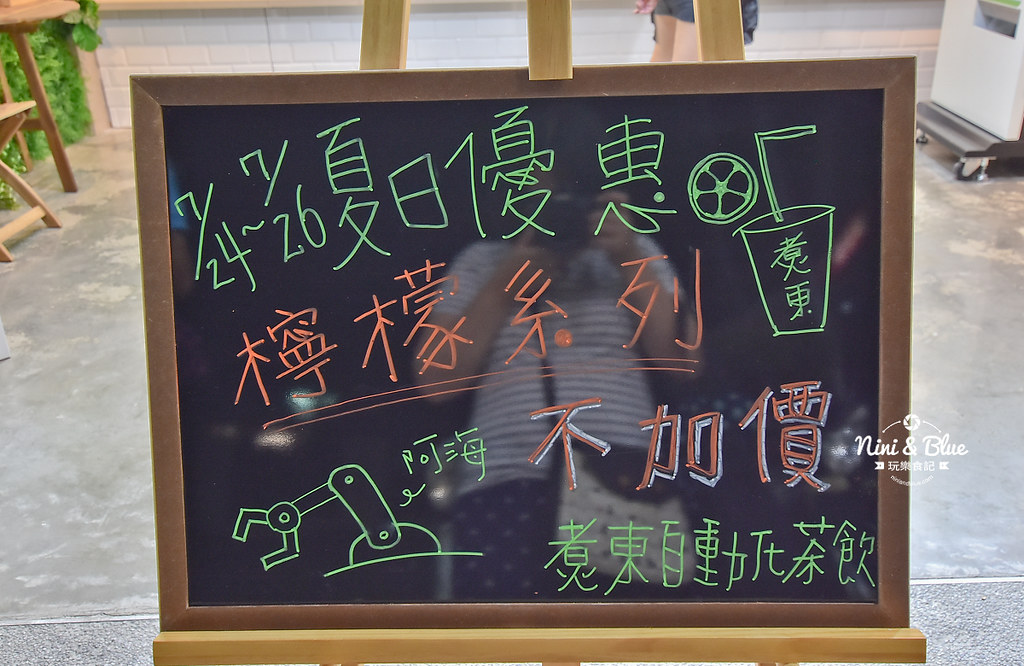 7/24~7/26夏日優惠
煮東
檸檬系列
不加價
阿海
煮東自動化茶飲
Nini & Blue
玩樂食記